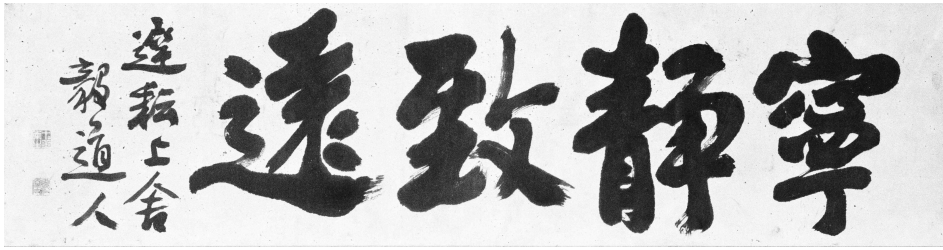 寧靜致遠
達耘上舍
道人